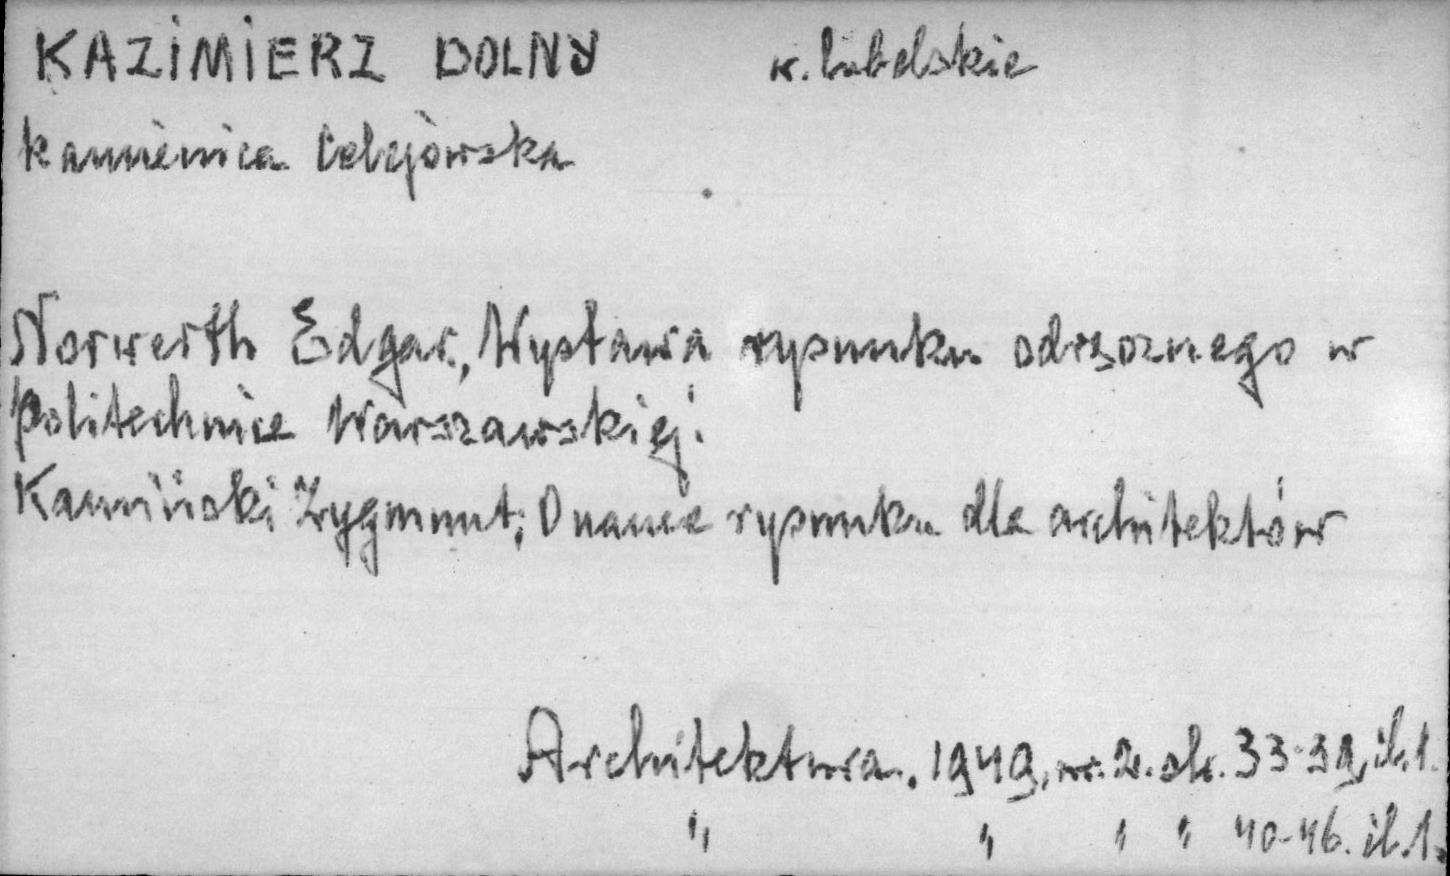 KAZIMIERZ DOLNY w. lubelskie
kamienica Celejowska
Norwerth Edgar, Wystawa rysunku odręcznego w
Politechnice Warszawskiej.
Kamiński Zygmunt, O nauce rysunku dla architektów
Architektura. 1949, nr. 2. str. 33-39, il. 1.
" " " " 40-46. il. 1.